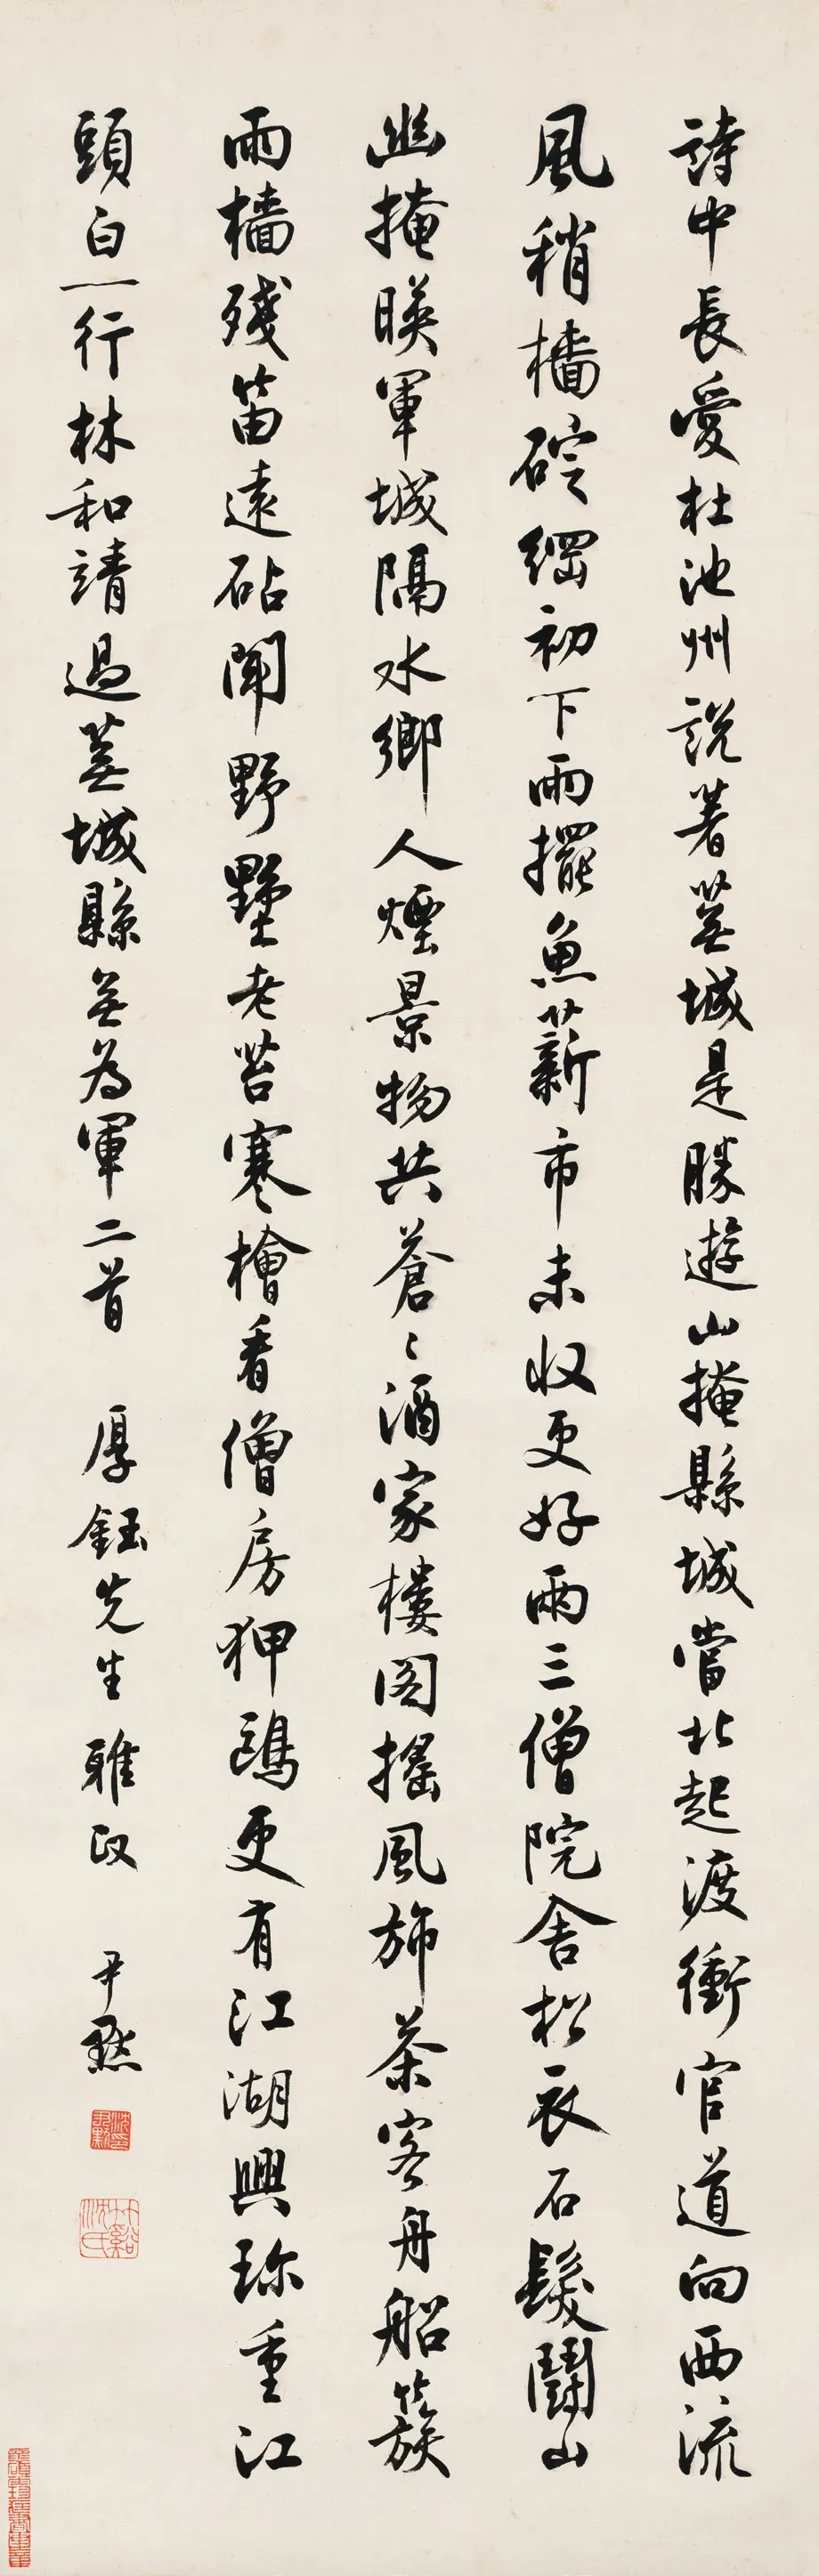 詩中長愛杜池州說著蕪城是勝遊山掩縣城當北起渡衝官道向西流
風稍檣碇網初下雨擺魚薪市未收更好兩三僧院舍松衣石髮鬪山
幽掩暎軍城隔水鄉人煙景物共蒼〻酒家樓閣搖風斾茶客舟船簇
雨檣殘笛遠砧聞野墅老苔寒檜看僧房狎鷗更有江湖興珎重江
頭白一行林和靖過蕪城縣無為軍二首 厚鈺先生雅政 尹默
沈尹默
竹谿沈氏